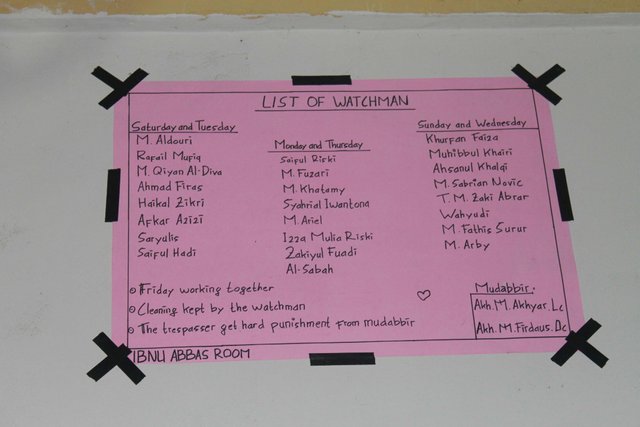 LIST OF WATCHMAN
Saturday and Tuesday
M. Aldouri
Rafail Mufiq
M. Qiyan Al-Diva
Ahmad Firas
Haikal Zikri
Afkar Azizi
Saryulis
Saiful Hadi
Monday and Thursday
Saiful Riski
M. Fuzari
M. Khatamy
Syahrial Iwantona
M. Ariel
Izza Mulia Riski
Zakiyul Fuadi
Al-Sabah
Sunday and Wednesday
Khurfan Faiza
Muhibbul Khairi
Ahsanul Khalqi
M. Sabrian Novic
T. M. Zaki Abrar
Wahyudi
M. Fathis Surur
M. Arby
Friday working together
Cleaning kept by the watchman
The trespasser get hard punishment from mudabbir
Mudabbir:
Akh. M. Akhyar. Lc
Akh. M. Firdaus. Dc
IBNU ABBAS ROOM